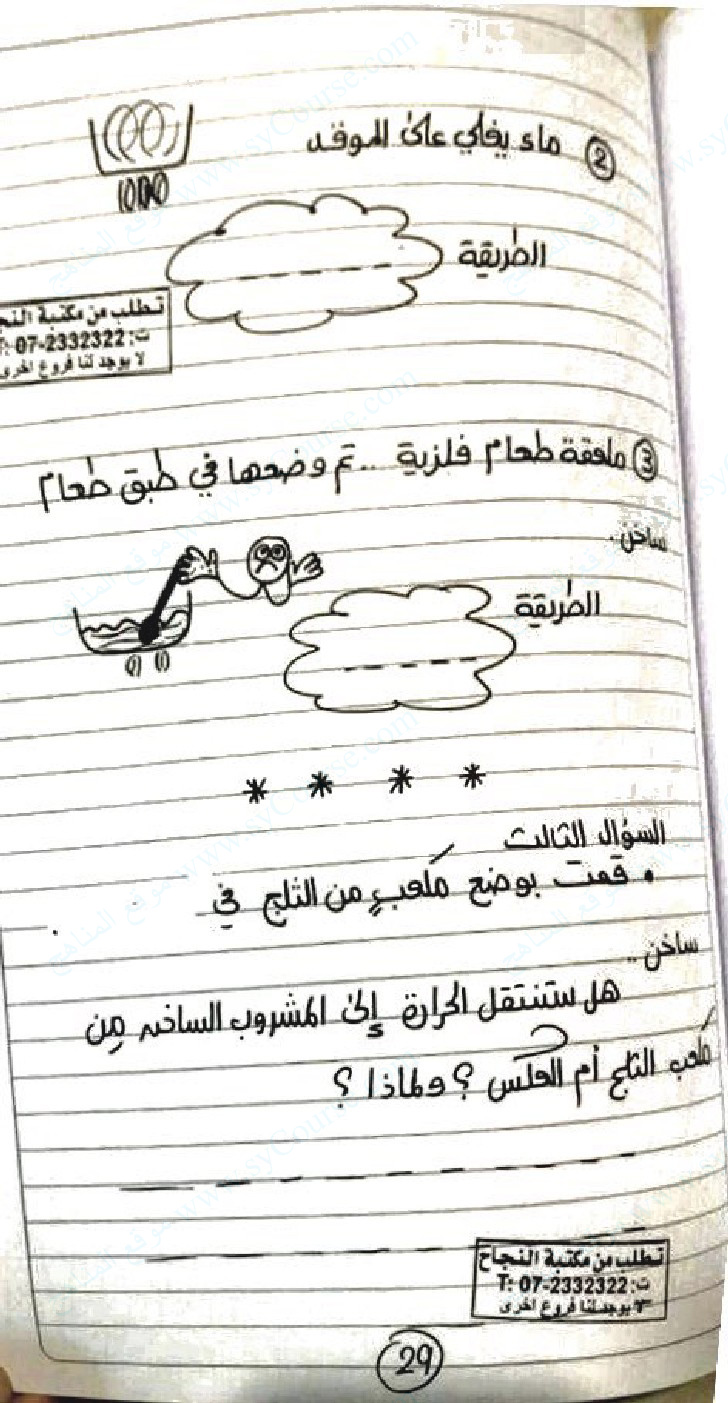 ② ماء يغلي على الموقد
الطريقة
تطلب من مكتبة النج
ت: 07-2332322 :T
لا يوجد لنا فروع اخرى
③ ملعقة طعام فلزية .. تم وضعها في طبق طعام
ساخن.
الطريقة
* * * *
السؤال الثالث
• قمت بوضع مكعبٍ من الثلج في
ساخن ..
هل ستنتقل الحرارة إلى المشروب الساخن مِن
مكعب الثلج أم العكس ؟ ولماذا ؟
تطلب من مكتبة النجاح
ت: 07-2332322 :T
لا يوجد لنا فروع اخرى
29
موقع المناهج www.syCourse.com